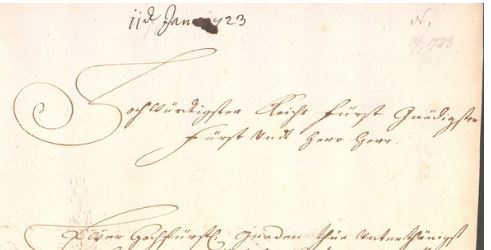 11 d Jan 1723
N.
7/1 1723
Hochwürdigster Reichs Fürst Gnädigster
Fürst Undt Herr Herr.
Ewer Hochfürstl. Gnaden thue Unterthänigst